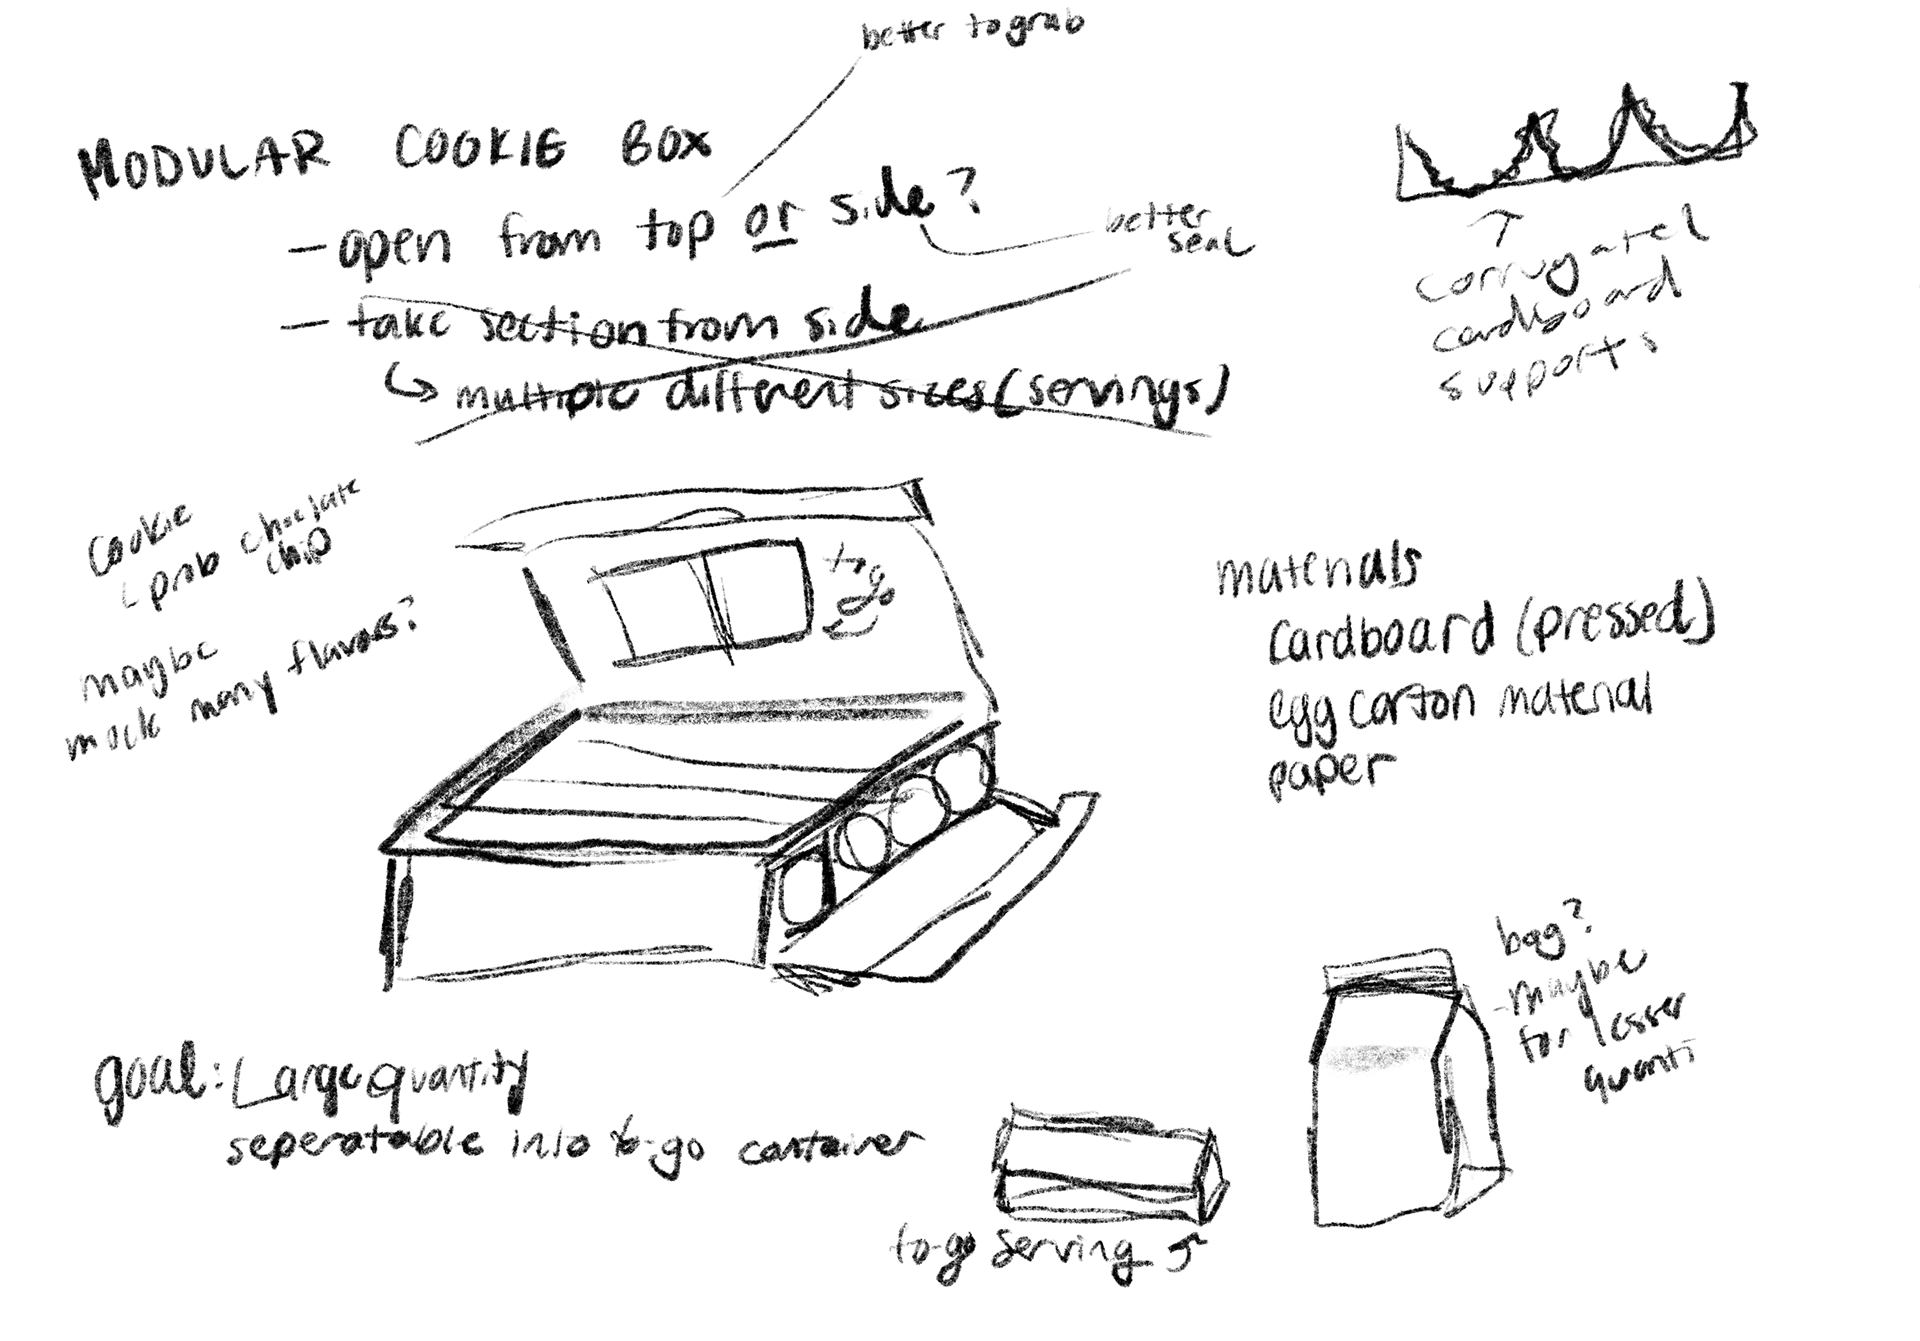 better to grab
MODULAR COOKIE BOX
- open from top or side?
better
seal
- take section from side
↳ multiple different sizes (servings)
corrugated
cardboard
supports
cookie
prob choclate
chip
maybe
mock many flavors?
to go
materials
cardboard (pressed)
egg carton material
paper
bag?
- maybe
for lesser
quanti
goal: Large quantity
seperatable into to-go container
to-go serving